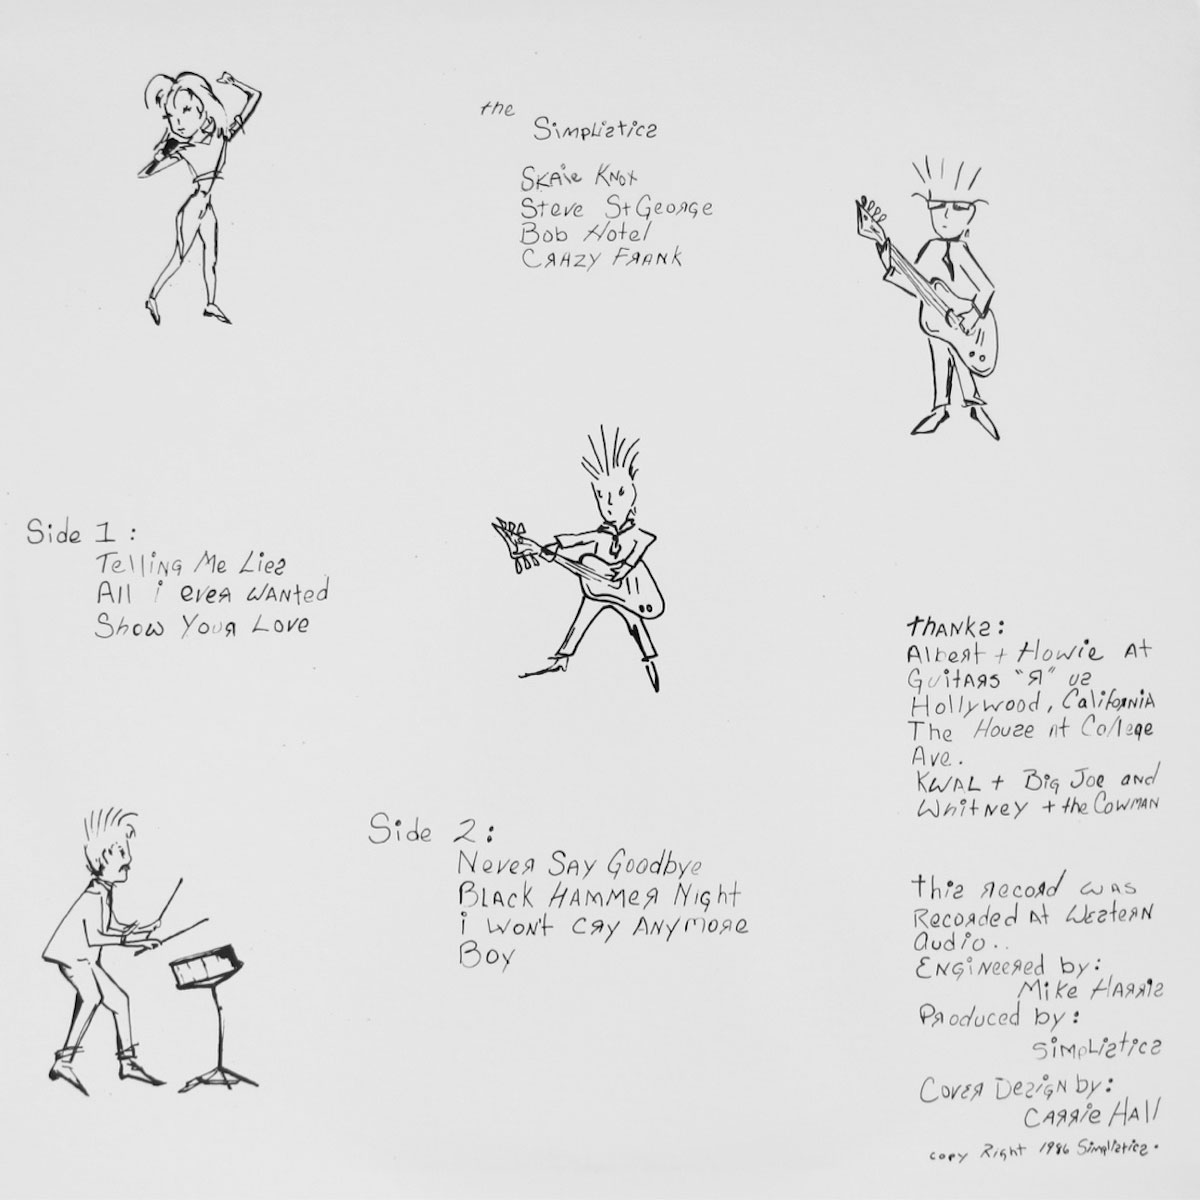 the
Simplistics
Skaie Knox
Steve St George
Bob Hotel
Crazy Frank
Side 1:
Telling Me Lies
All i ever wanted
Show Your Love
Side 2:
Never Say Goodbye
Black Hammer Night
i won't cry anymore
Boy
thanks:
Albert + Howie At
Guitars "Я" us
Hollywood, California
The House at College
Ave.
KWAL + Big Joe and
Whitney + the Cowman
this record was
Recorded at Western
audio..
Engineered by:
Mike Harris
Produced by:
Simplistics
Cover Design by:
Carrie Hall
copy Right 1986 Simplistics.